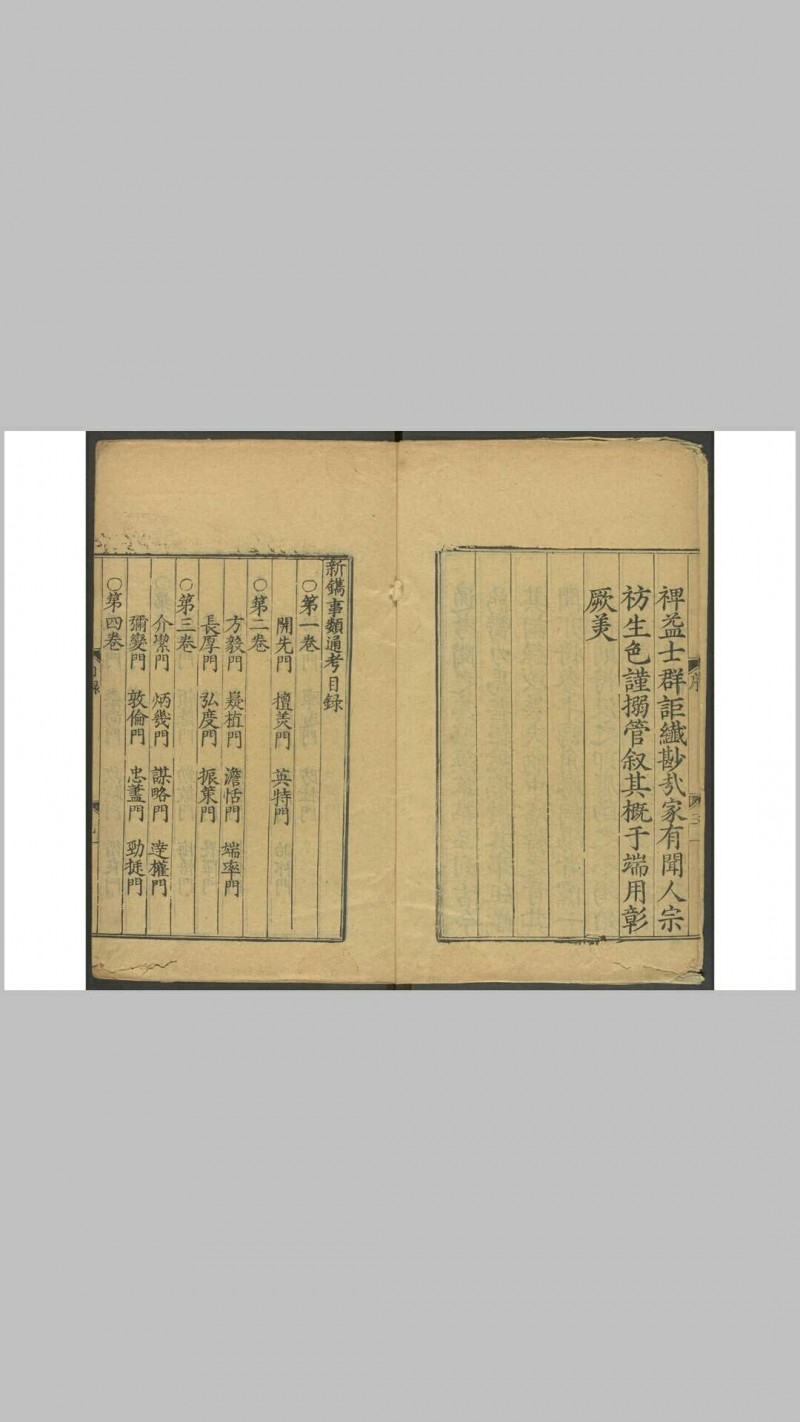 裨益士群詎纖尠㢤家有聞人宗
祊生色謹搦管叙其概于端用彰
厥美
序
三
新鐫事類通考目録
○第一卷
開先門 擅美門 英特門
○第二卷
方毅門 嶷植門 澹恬門 端率門
長厚門 弘度門 振策門
○第三卷
介潔門 炳幾門 謀略門 達權門
彌變門 敦倫門 忠藎門 勁挺門
○第四卷
目録